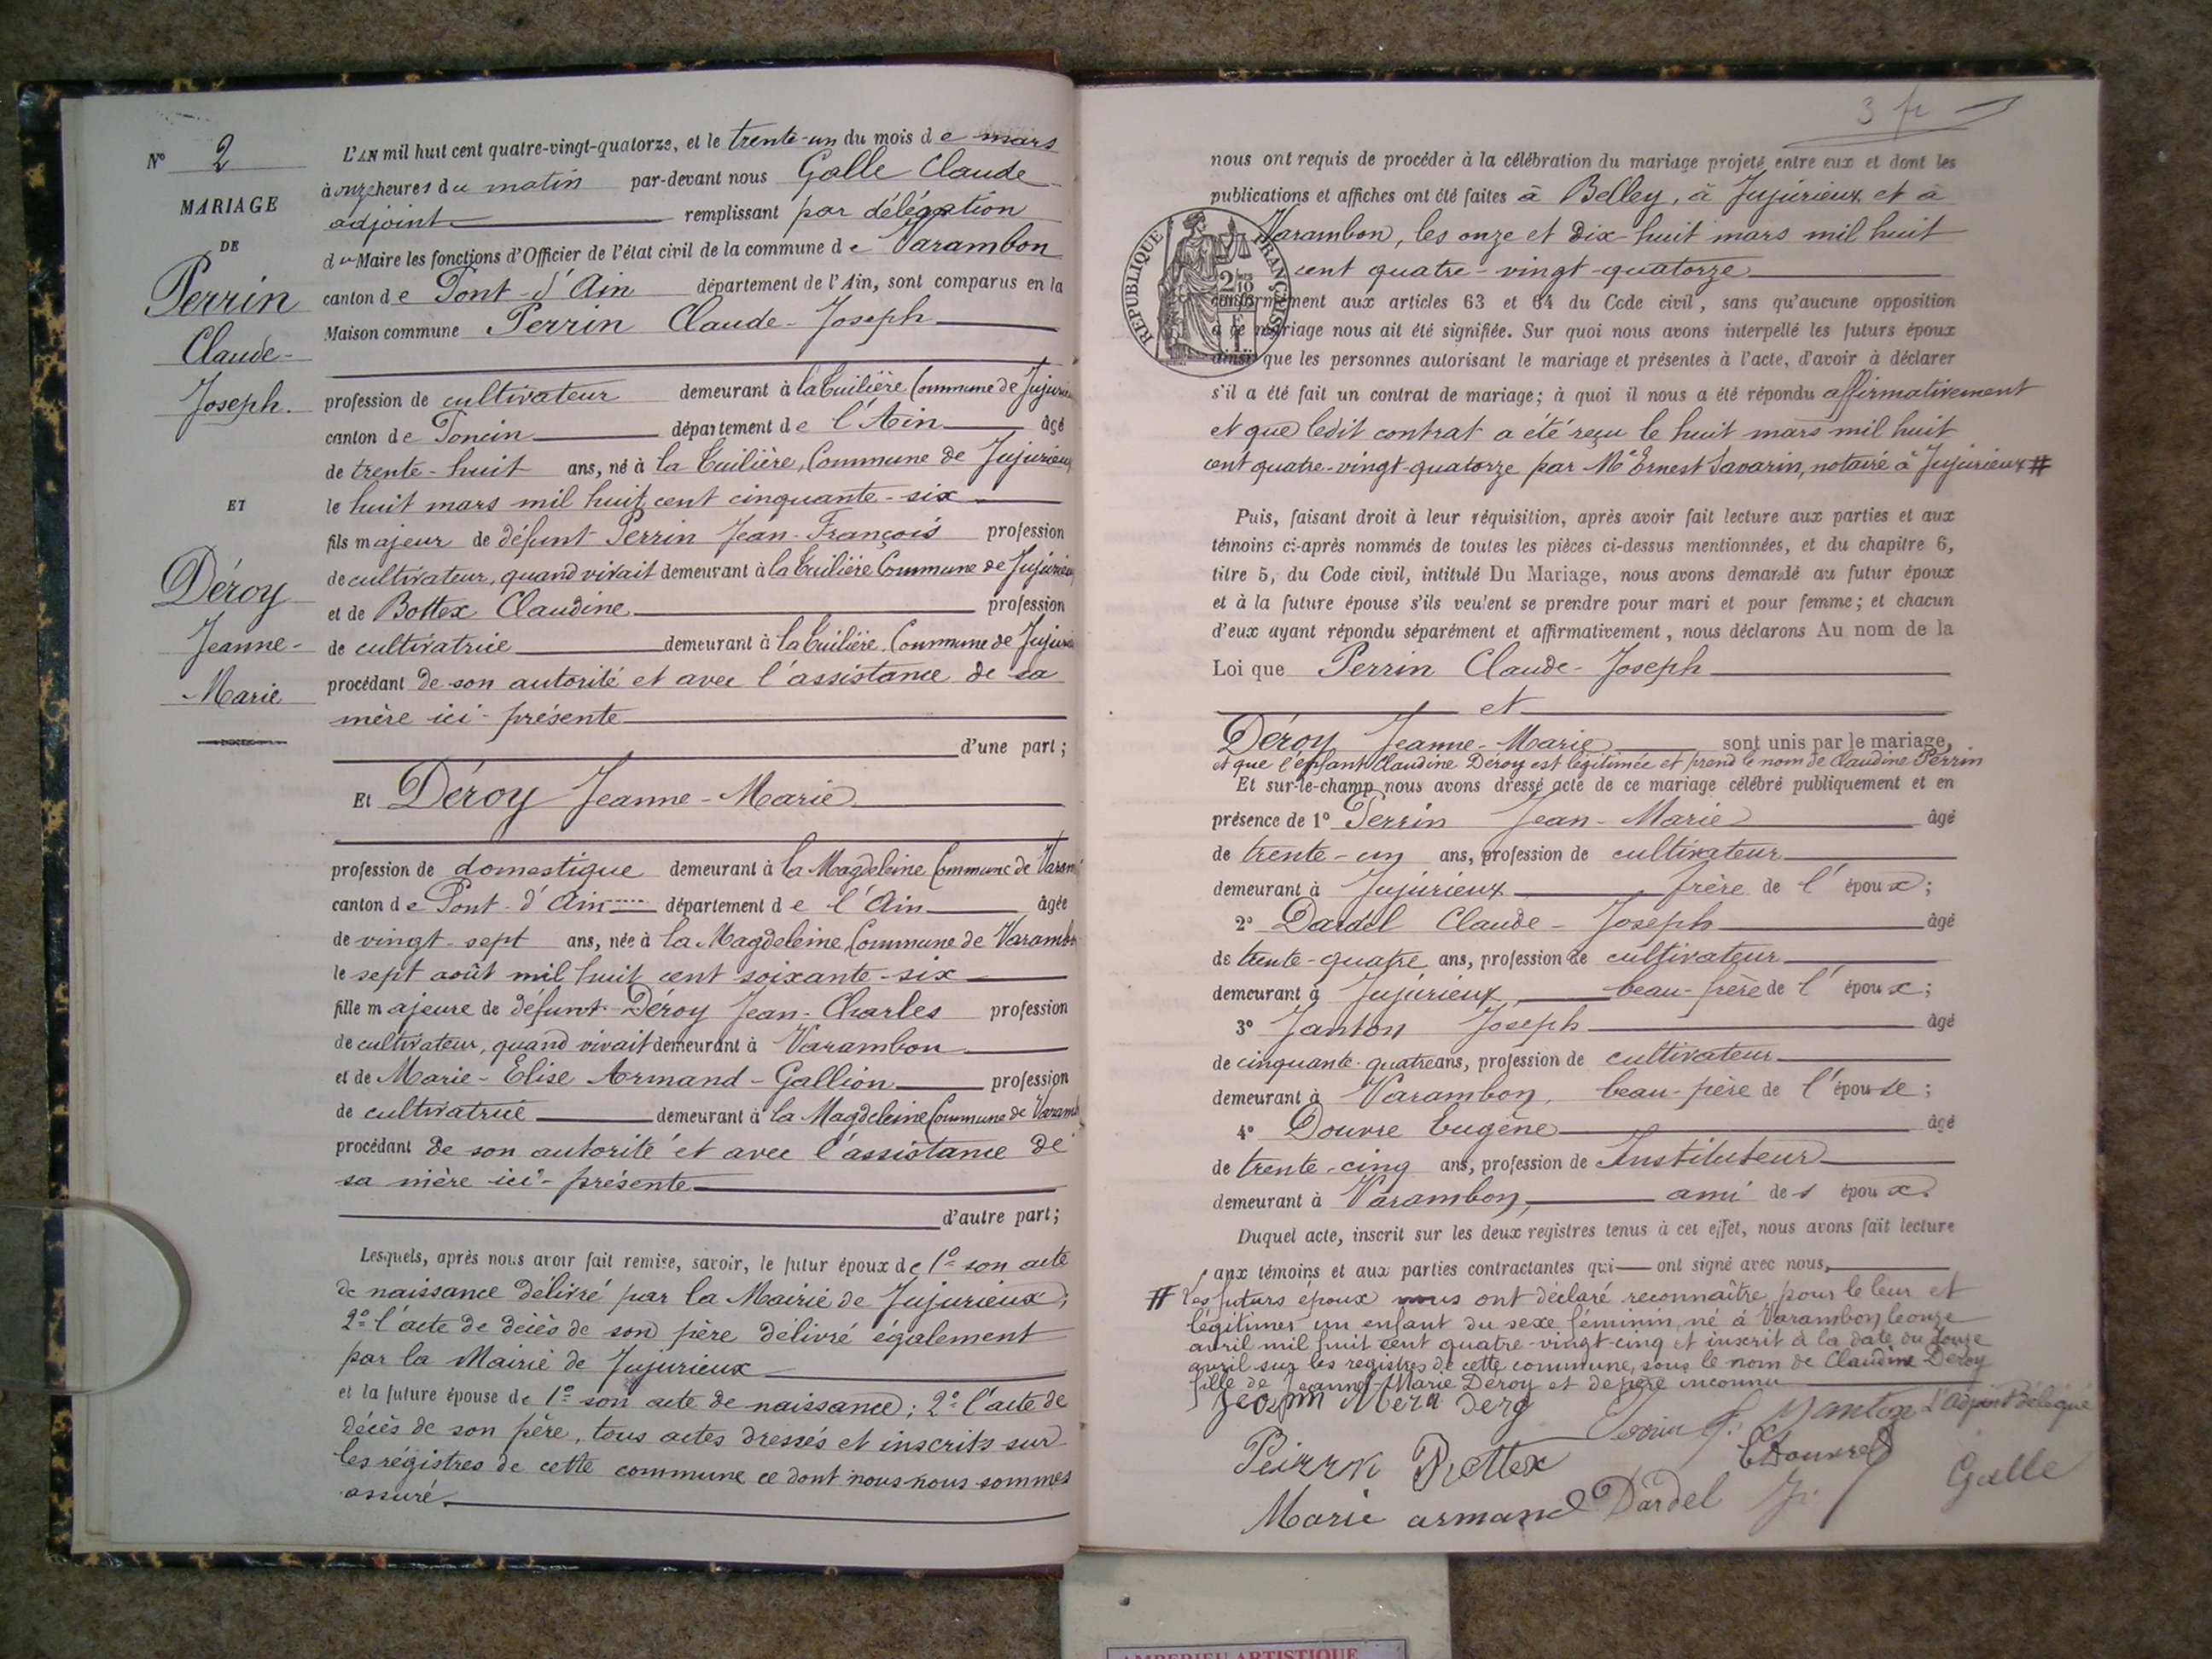 N° 2
MARIAGE
DE
Perrin
Claude-
Joseph.
ET
Déroy
Jeanne-
Marie
L'AN mil huit cent quatre-vingt-quatorze, et le trente-un du mois de mars
à onze heures du matin par-devant nous Galle Claude
adjoint remplissant par délégation
du Maire les fonctions d'Officier de l'état civil de la commune de Varambon
canton de Pont-d'Ain département de l'Ain, sont comparus en la
Maison commune Perrin Claude-Joseph
profession de cultivateur demeurant à la Cuilière Commune de Jujurieux
canton de Poncin département de l'Ain âgé
de trente-huit ans, né à la Cuilière, Commune de Jujurieux
le huit mars mil huit cent cinquante-six
fils majeur de défunt Perrin Jean-François profession
de cultivateur, quand vivait demeurant à la Cuilière Commune de Jujurieux
et de Bottex Claudine profession
de cultivatrice demeurant à la Cuilière. Commune de Jujurieux
procédant de son autorité et avec l'assistance de sa
mère ici-présente
d'une part;
Et Déroy Jeanne-Marie
profession de domestique demeurant à la Magdeleine Commune de Varam
canton de Pont-d'Ain département de l'Ain âgée
de vingt-sept ans, née à la Magdeleine Commune de Varambon
le sept août mil huit cent soixante-six
fille majeure de défunt Déroy Jean-Charles profession
de cultivateur, quand vivait demeurant à Varambon
et de Marie-Elise Armand-Gallion profession
de cultivatrice demeurant à la Magdeleine Commune de Varamb
procédant de son autorité et avec l'assistance de
sa mère ici-présente
d'autre part;
Lesquels, après nous avoir fait remise, savoir, le futur époux de 1° son acte
de naissance délivré par la Mairie de Jujurieux;
2° l'acte de décès de son père délivré également
par la Mairie de Jujurieux
et la future épouse de 1° son acte de naissance; 2° l'acte de
décès de son père, tous actes dressés et inscrits sur
les régistres de cette commune ce dont nous nous sommes
assuré.
3 fr
nous ont requis de procéder à la célébration du mariage projeté entre eux et dont les
publications et affiches ont été faites à Belley, à Jujurieux et à
Varambon, les onze et dix-huit mars mil huit
cent quatre-vingt-quatorze
REPUBLIQUE FRANÇAISE
conformément aux articles 63 et 64 du Code civil, sans qu'aucune opposition
à ce mariage nous ait été signifiée. Sur quoi nous avons interpellé les futurs époux
ainsi que les personnes autorisant le mariage et présentes à l'acte, d'avoir à déclarer
s'il a été fait un contrat de mariage; à quoi il nous a été répondu affirmativement
et que ledit contrat a été reçu le huit mars mil huit
cent quatre-vingt-quatorze par Me Ernest Savarin, notaire à Jujurieux #
Puis, faisant droit à leur réquisition, après avoir fait lecture aux parties et aux
témoins ci-après nommés de toutes les pièces ci-dessus mentionnées, et du chapitre 6,
titre 5, du Code civil, intitulé Du Mariage, nous avons demandé au futur époux
et à la future épouse s'ils veulent se prendre pour mari et pour femme; et chacun
d'eux ayant répondu séparément et affirmativement, nous déclarons Au nom de la
Loi que Perrin Claude-Joseph
et
Déroy Jeanne-Marie sont unis par le mariage,
et que l'enfant Claudine Déroy est légitimée et prend le nom de Claudine Perrin
Et sur-le-champ nous avons dressé acte de ce mariage célébré publiquement et en
présence de 1° Perrin Jean-Marie âgé
de trente-un ans, profession de cultivateur
demeurant à Jujurieux frère de l'époux;
2° Dardel Claude-Joseph âgé
de trente-quatre ans, profession de cultivateur
demeurant à Jujurieux, beau-frère de l'époux;
3° Janton Joseph âgé
de cinquante-quatre ans, profession de cultivateur
demeurant à Varambon, beau-père de l'épouse;
4° Douvre Eugène âgé
de trente-cinq ans, profession de Instituteur
demeurant à Varambon, ami des époux.
Duquel acte, inscrit sur les deux registres tenus à cet effet, nous avons fait lecture
aux témoins et aux parties contractantes qui ont signé avec nous,
# Les futurs époux nous ont déclaré reconnaître pour le leur et
légitimer un enfant du sexe féminin né à Varambon le onze
avril mil huit cent quatre-vingt-cinq et inscrit à la date du douze
avril sur les registres de cette commune, sous le nom de Claudine Déroy
fille de Jeanne-Marie Déroy et de père inconnu
Janton L'adjoint Délégué
Bottex EDouvre
Galle
Marie armand Dardel